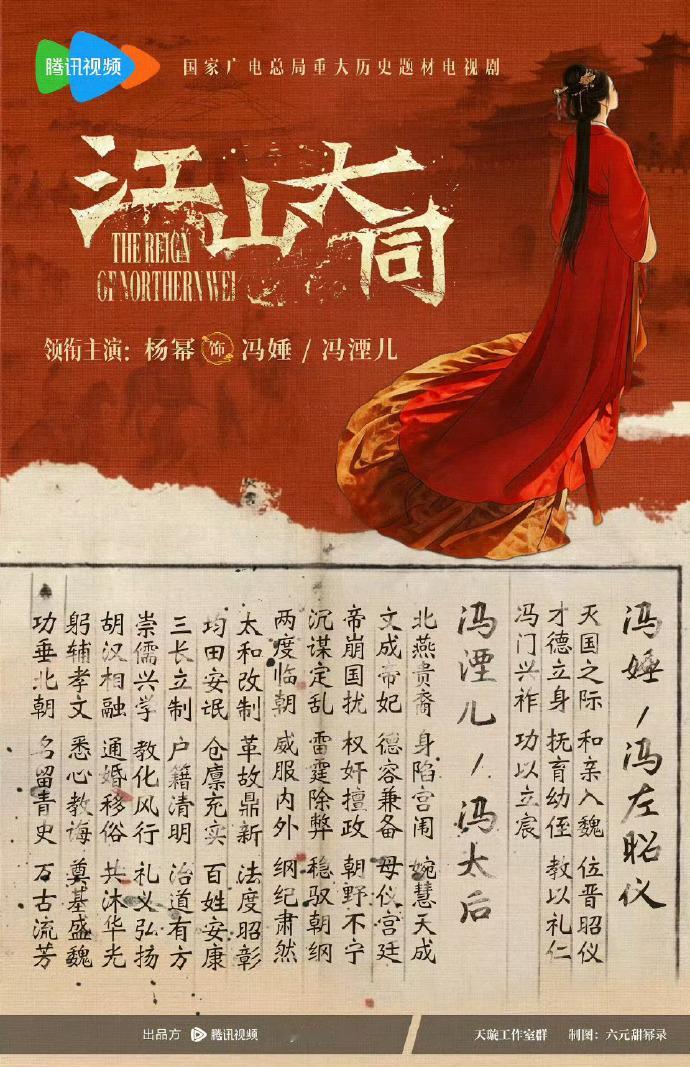 腾讯视频
国家广电总局重大历史题材电视剧
江山大同
THE REIGN
OF NORTHERN WEI
领衔主演：杨幂 饰 冯娷 / 冯湮儿
冯娷/冯左昭仪
灭国之际 和亲入魏 位晋昭仪
才德立身 抚育幼侄 教以礼仁
冯门兴祚 功以立宸
冯湮儿/冯太后
北燕贵裔 身陷宫闱 婉慧天成
文成帝妃 德容兼备 母仪宫廷
帝崩国扰 权奸擅政 朝野不宁
沉谋定乱 雷霆除弊 稳驭朝纲
两度临朝 威服内外 纲纪肃然
太和改制 革故鼎新 法度昭彰
均田安氓 仓廪充实 百姓安康
三长立制 户籍清明 治道有方
崇儒兴学 教化风行 礼义弘扬
胡汉相融 通婚移俗 共沐华光
躬辅孝文 悉心教诲 奠基盛魏
功垂北朝 名留青史 万古流芳
出品方 腾讯视频
天璇工作室群 制图：六元甜幂录